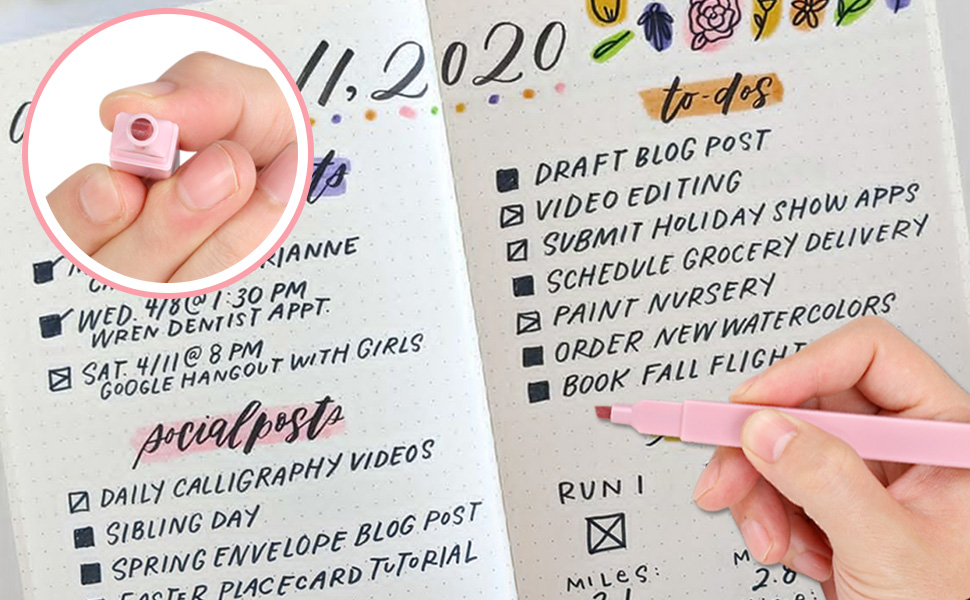 11, 2020
RIANNE
WED. 4/8@1:30 PM
WREN DENTIST APPT.
SAT. 4/11@8 PM
GOOGLE HANGOUT WITH GIRLS
social posts
DAILY CALLIGRAPHY VIDEOS
SIBLING DAY
SPRING ENVELOPE BLOG POST
EASTER PLACECARD TUTORIAL
to-dos
DRAFT BLOG POST
VIDEO EDITING
SUBMIT HOLIDAY SHOW APPS
SCHEDULE GROCERY DELIVERY
PAINT NURSERY
ORDER NEW WATERCOLORS
BOOK FALL FLIGHT
RUN 1
MILES:
2.8